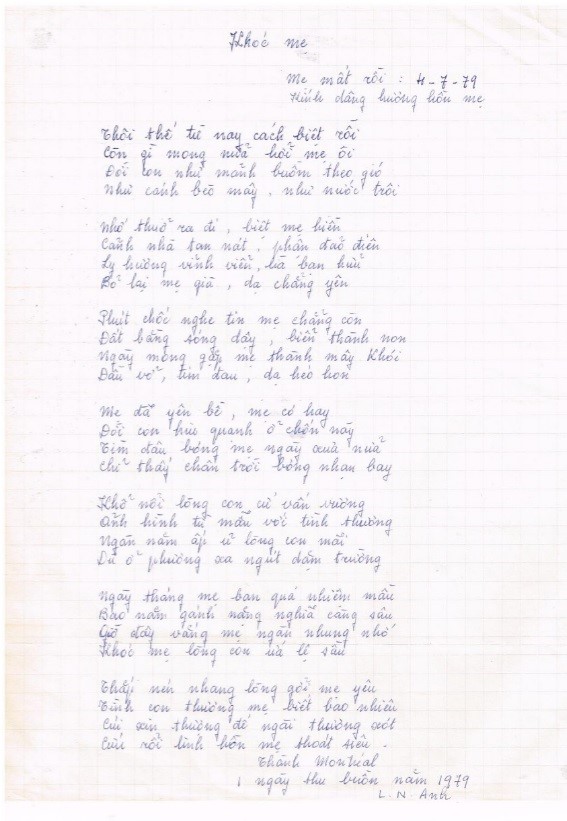 Khóc mẹ
Mẹ mất rồi : 4-7-79
Kính dâng hương hồn mẹ
Thôi thế từ nay cách biệt rồi
Còn gì mong nữa hỡi mẹ ôi
Đời con như mảnh buồm theo gió
Như cánh bèo mây, như nước trôi
Nhớ thuở ra đi, biệt mẹ hiền
Cảnh nhà tan nát, phận đảo điên
Ly hương vĩnh viễn, xa bạn hữu
Bỏ lại mẹ già, dạ chẳng yên
Phút chốc nghe tin mẹ chẳng còn
Đất bằng sóng dậy, biển thành non
Ngày mong gặp mẹ thành mây khói
Đầu vỡ, tim đau, dạ héo hon
Mẹ đã yên bề, mẹ có hay
Đời con hiu quạnh ở chốn này
Tìm đâu bóng mẹ ngày xưa nữa
Chỉ thấy chân trời bóng nhạn bay
Khổ nỗi lòng con cứ vấn vương
Ảnh hình từ mẫu với tình thương
Ngàn năm ấp ủ lòng con mãi
Dù ở phương xa ngút dặm trường
Ngày tháng mẹ ban quá nhiệm mầu
Bao năm gánh nặng nghĩa càng sâu
Giờ đây vắng mẹ ngàn nhung nhớ
Khóc mẹ lòng con úa lệ sầu
Thắp nén nhang lòng gởi mẹ yêu
Tình con thương mẹ biết bao nhiêu
Cúi xin thượng đế ngài thương xót
Cứu rỗi linh hồn mẹ thoát siêu.
Thành Montréal
1 ngày thu buồn năm 1979
L. N. Anh